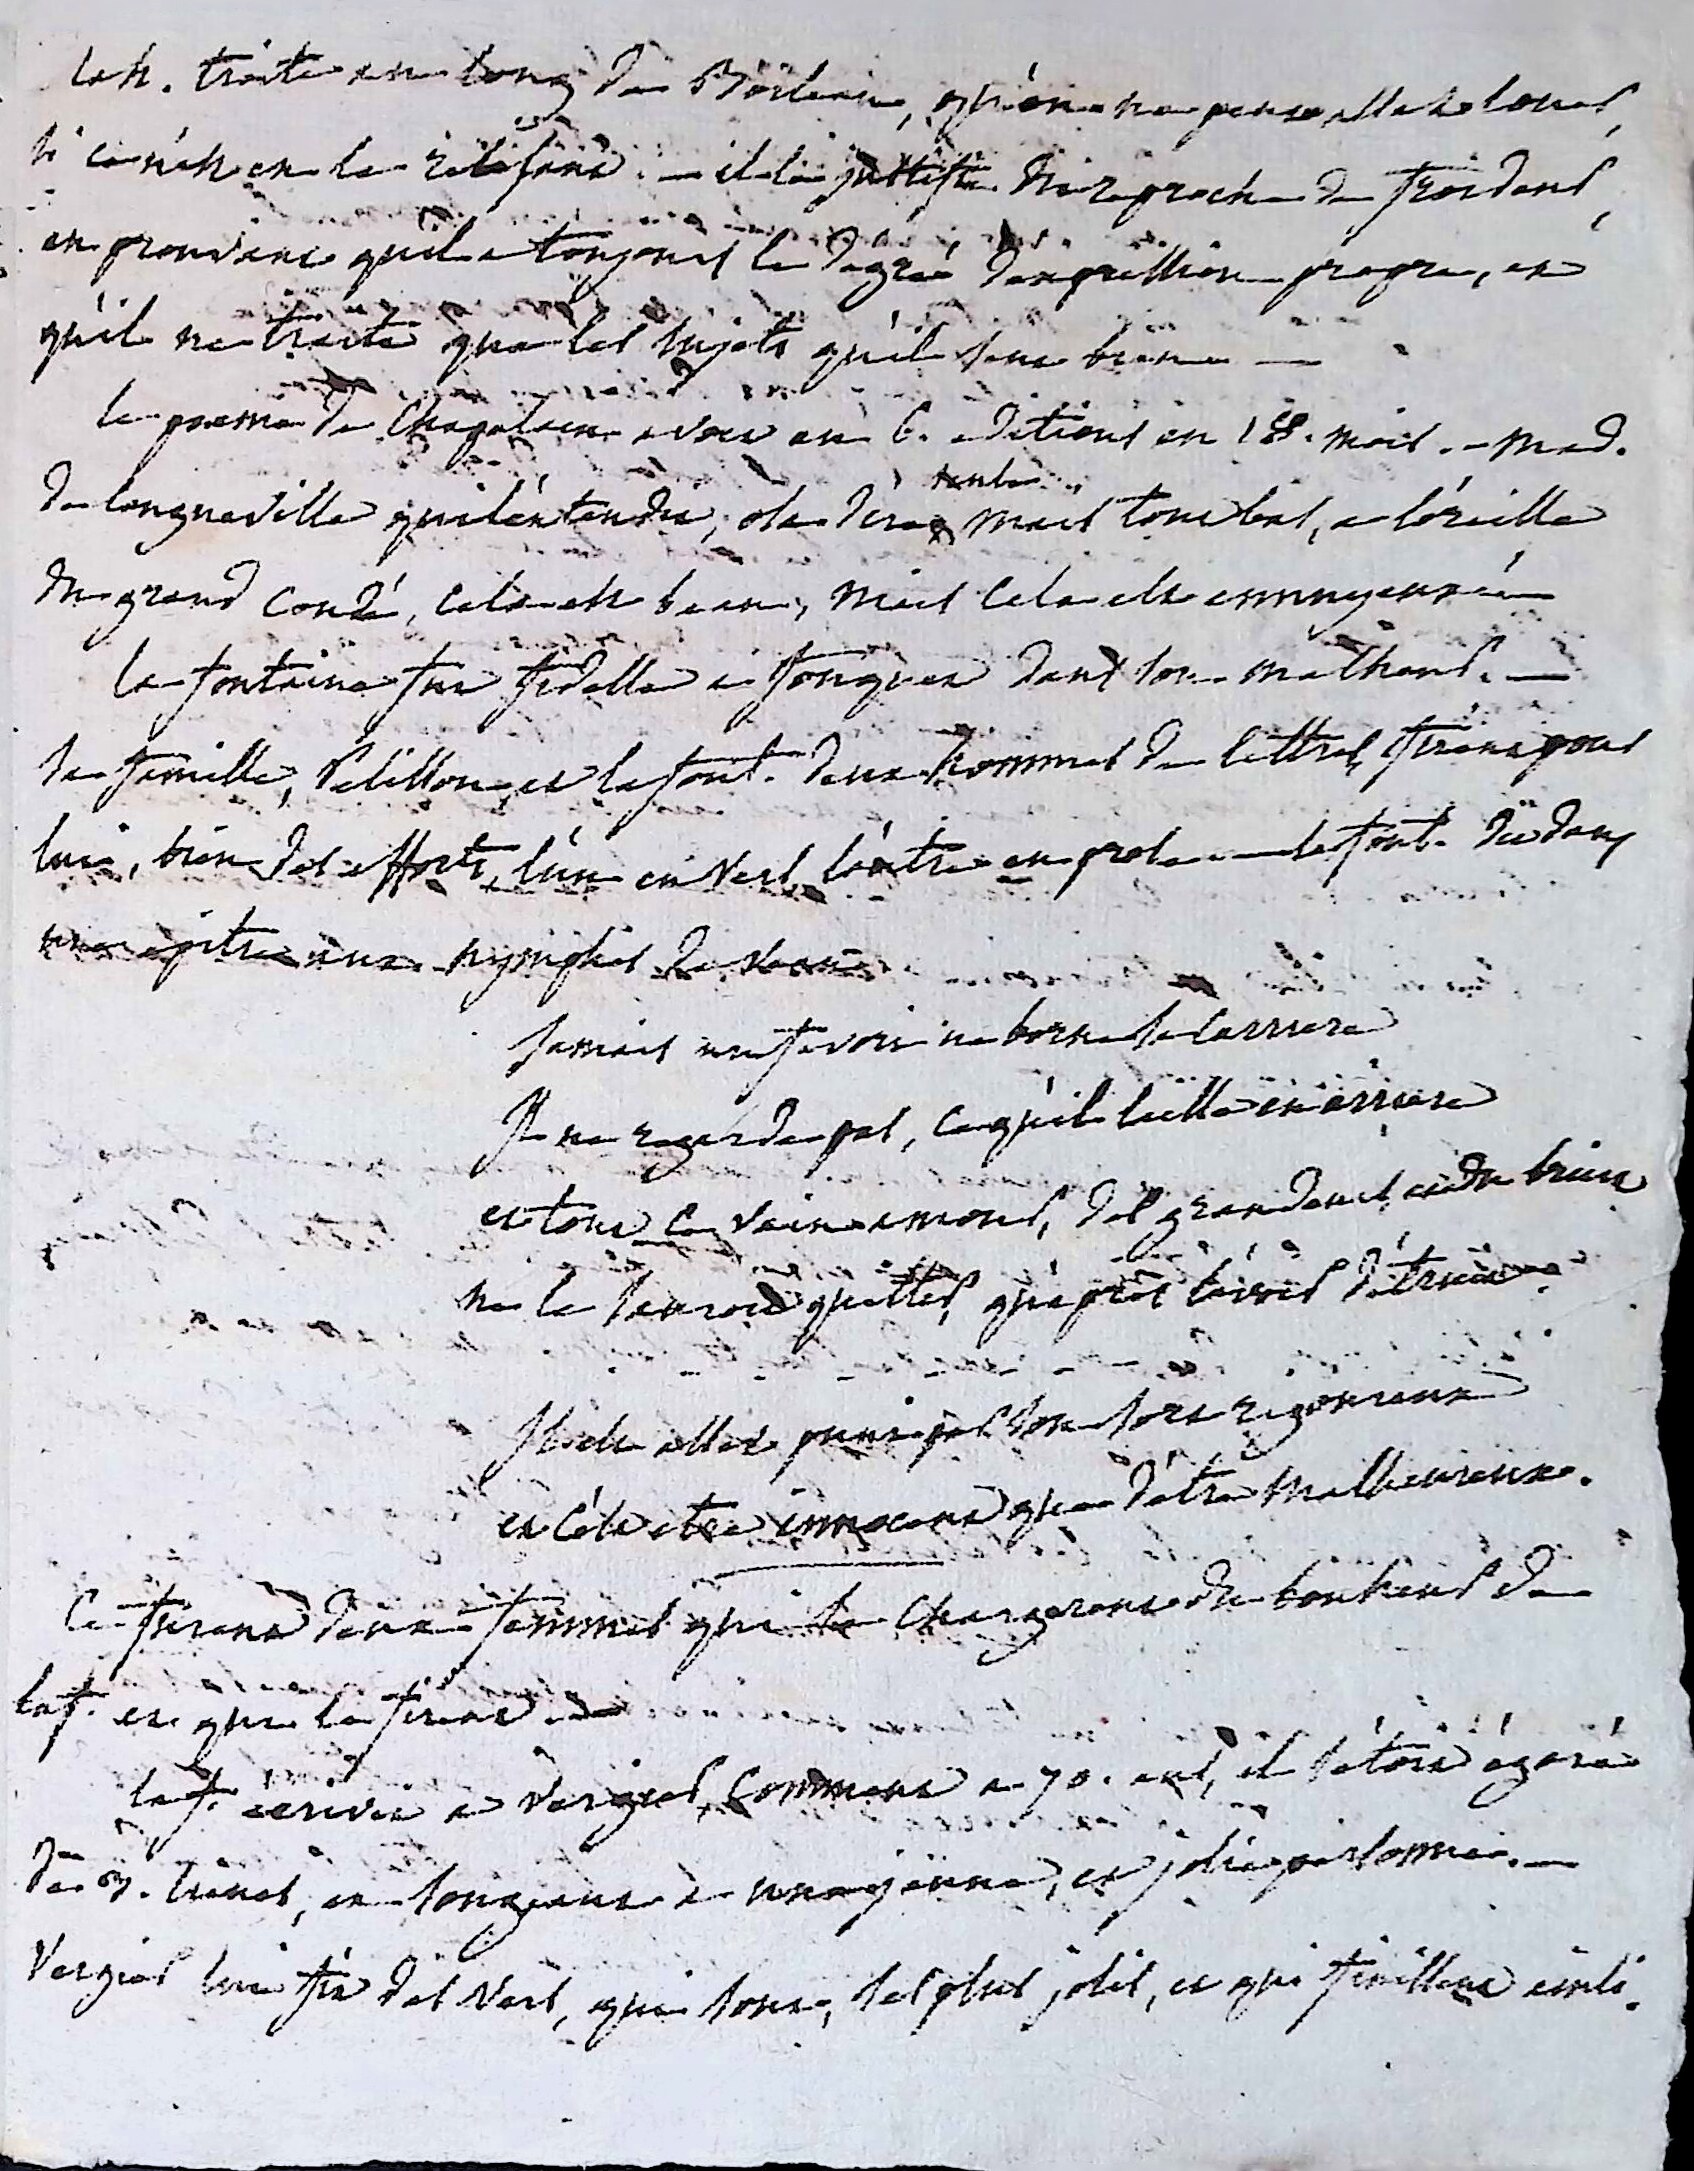 lah. traite en long de Boileau, qu'on ne peux assez louer,
si ce n'est en le relisant. — il le justifie du reproche de froideur,
en prouvant qu'il a toujours le degré d'expression propre, et
qu'il ne traite que les sujets qu'il sent bien —
le poeme de Chapelain avait eu 6. editions en 18. mois. — Mad.
de longueville qui l'entendit, osa dire seule, mais tout bas, a l'oreille
du grand Condé, cela est beau, mais cela est ennuyeux —
la fontaine fut fidelle a fouquet dans son malheur. —
sa famille, Pelisson, et lafont. deux hommes de lettres, firent pour
lui, bien des efforts, l'un en vers, l'autre en prose — lafont. dit dans
une epitre aux nymphes de vaux
Jamais un favori ne borne sa carriere
Il ne regarde pas, ce qu'il laisse en arriere
et tout ce vain amour, des grandeurs, et du bruit
ne le sauroit quitter, qu'après l'avoir détruit.
Il est assez puni par son sort rigoureux
et c'est etre innocent que d'être malheureux.
Ce furent deux femmes qui se chargerent du bonheur de
laf. et qui le firent. —
laf. écrivit a Vergier, comment a 70. ans, il s'étoit égaré
de 3. lieues, en songeant a une jeune, et jolie personne. —
Vergier lui fit des vers, qui sont, des plus jolis, et qui finissent ainsi.